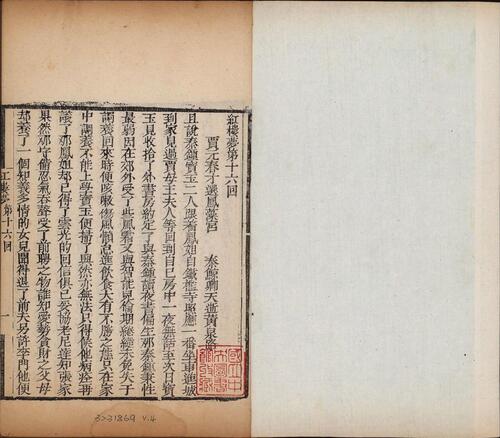 紅樓夢第十六回
賈元春才選鳳藻宮　秦鯨卿夭逝黃泉路
且說秦鍾寶玉二人跟着鳳姐自鐵檻寺照應一番坐車進城
到家見過賈母王夫人等回到自己房中一夜無話至次日寶
玉見收拾了外書房約定了與秦鍾讀夜書偏生那秦鍾秉性
最弱因在郊外受了些風霜又與智能兒偷期繾綣未免失于
調養回來時便咳嗽傷風懶進飲食大有不勝之態只在家
中調養不能上學寶玉便掃了興然亦無法只得候他病痊再
議了那鳳姐却已得了雲光的回信俱已妥協老尼達知張家
果然那守備忍氣吞聲受了前聘之物誰知愛勢貪財之父母
却養了一個知義多情的女兒聞得退了前夫另許李門他便
紅樓夢 第十六回 一
31869 v.4